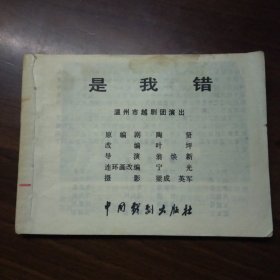 是我错
温州市越剧团演出
原编剧 陶贤
改编 叶坪
导演 翁焕新
连环画改编 宁光
摄影 裴成 英军
中国戏剧出版社